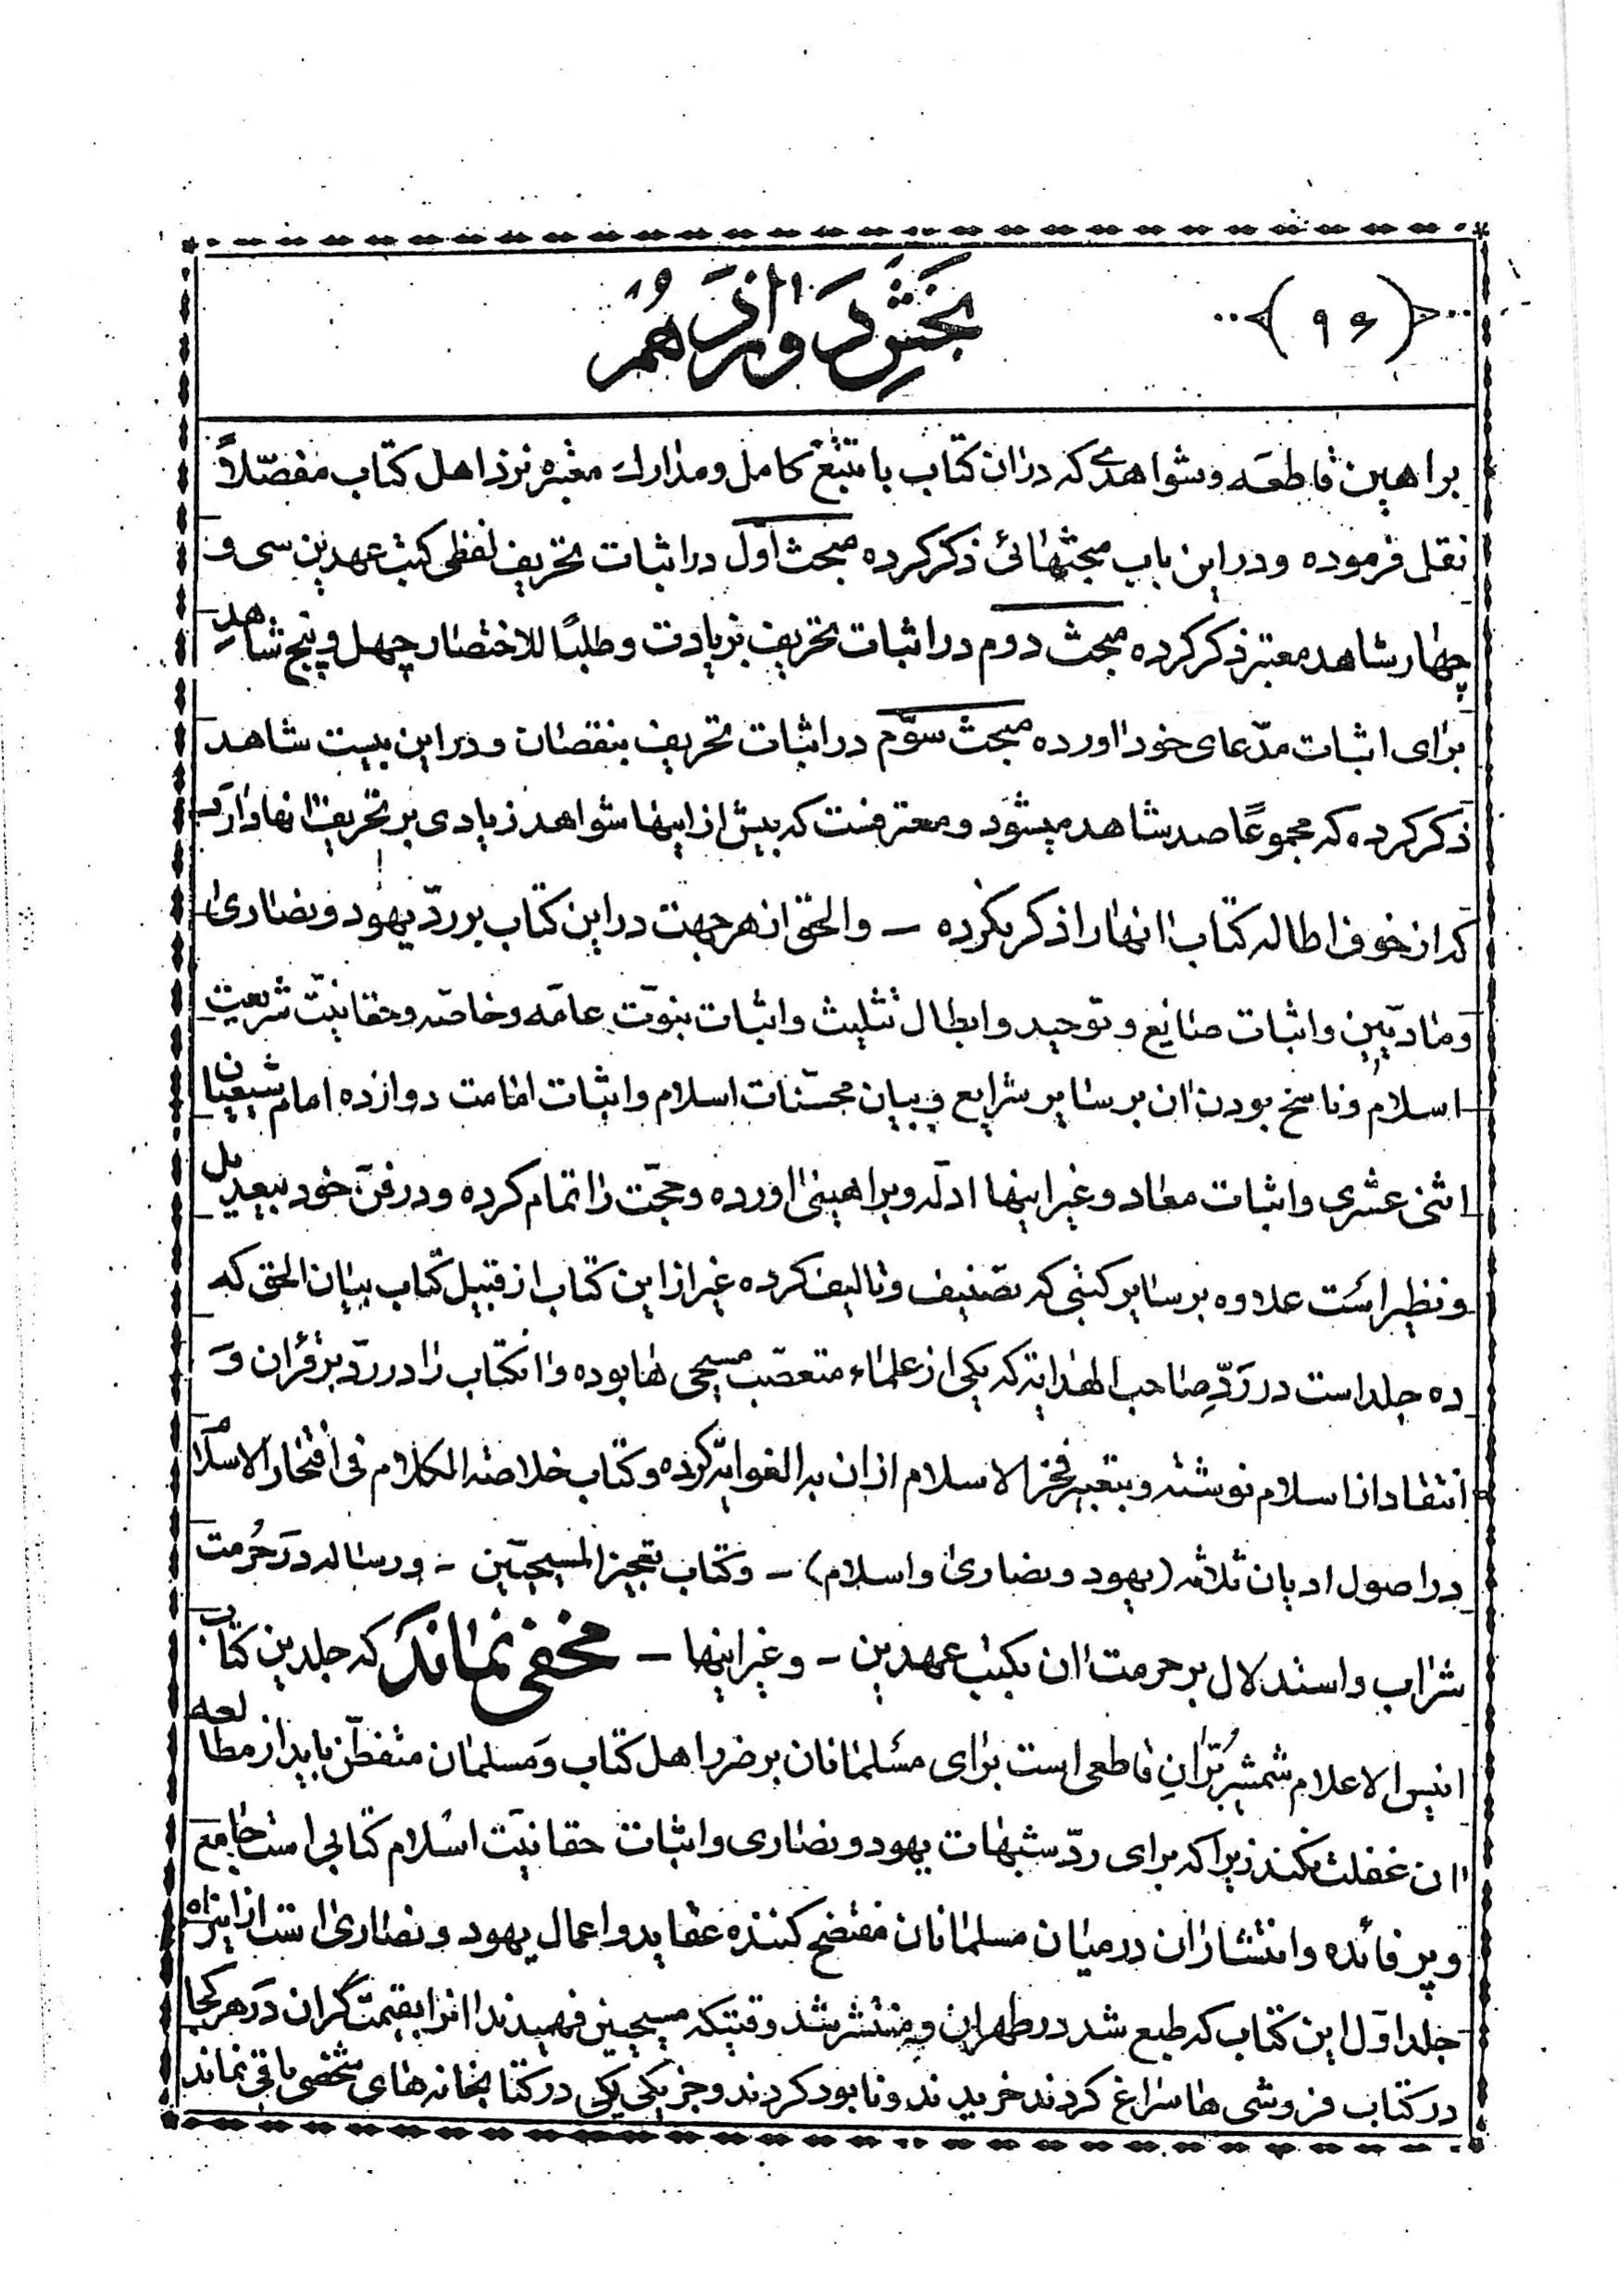 (۹۶)
بخش دوازدهم
براهین قاطعه و شواهدی که در ان کتاب با تتبّع کامل و مدارك معتبره نزد اهل کتاب مفصّلاً
نقل فرموده و در این باب مبحثهائی ذکر کرده مبحث اوّل در اثبات تحریف لفظی کتب عهدین سی و
چهار شاهد معتبر ذکر کرده مبحث دوم در اثبات تحریف بزیادت و طلبًا للاختصار چهل و پنج شاهد
برای اثبات مدّعای خود اورده مبحث سوّم در اثبات تحریف بنقصان و در این بیست شاهد
ذکر کرده که مجموعًا صد شاهد میشود و معترفست که بیش از اینها شواهد زیادی بر تحریف انها وارد
که از خوف اطاله کتاب انها را ذکر نکرده – والحق از هر جهت در این کتاب بر ردّ یهود و نصاریٰ
و مادیّین و اثبات صنایع و توحید و ابطال تثلیث و اثبات نبوّت عامّه و خاصّه و حقانیّت شریعت
اسلام و ناسخ بودن ان بر سایر شرایع و بیان محسّنات اسلام و اثبات امامت دوازده امام شیعیان
اثنی عشری و اثبات معاد و غیر اینها ادلّه و براهینی اورده و حجّت را تمام کرده و در فنّ خود بیعدیل
و نظیر است علاوه بر سایر کتبی که تصنیف و تالیف کرده غیر از این کتاب از قبیل کتاب بیان الحق که
ده جلد است در رَدِّ صاحب الهدایة که یکی از علماء متعصّب مسیحی ها بوده و انکتاب را در ردّ بر قران وَ
انتقاد از اسلام نوشته و بتعبیر فخر الاسلام از ان به الغوایة کرده و کتاب خلاصة الکلام فی افتخار الاسلام
در اصول ادیان ثلاثه (یهود و نصاریٰ و اسلام) – و کتاب تعجیز المسیحیّین – و رساله در حُرمت
شراب و استدلال بر حرمت ان بکتب عهدین – و غیر اینها – مخفی نماند که جلدین کتاب
انیس الاعلام شمشیر بُرّانِ قاطعی است برای مسلمانان بر ضرر اهل کتاب وَ مسلمان متفطّن باید از مطالعه
ان غفلت نکند زیرا که برای ردّ شبهات یهود و نصاری و اثبات حقانیّت اسلام کتابی است جامع
و پر فائده و انتشار ان در میان مسلمانان مفتضح کننده عقاید و اعمال یهود و نصاریٰ است از اینراه
جلد اوّل این کتاب که طبع شد در طهران و منتشر شد وقتیکه مسیحیین فهمیدند انرا بقیمت گران در هر کجا
در کتاب فروشی ها سراغ کردند خریدند و نابود کردند و جز یکی یکی در کتابخانه های شخصی باقی نماند